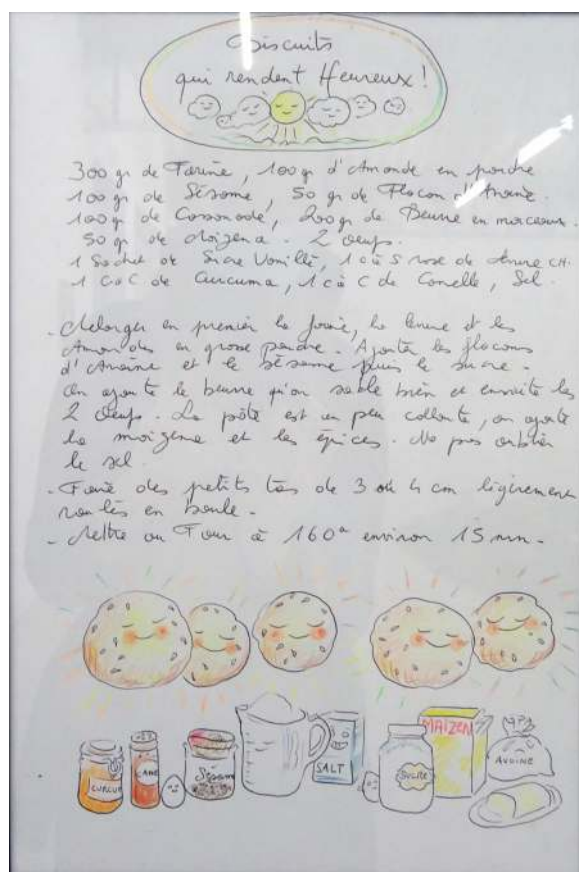 Biscuits
qui rendent Heureux !
300 gr de Farine, 100 gr d'Amande en poudre
100 gr de Sésame, 50 gr de Flocon d'Avoine.
100 gr de Cassonade, 200 gr de Beurre en morceaux.
50 gr de Maïzena. 2 Oeufs.
1 Sachet de Sucre Vanillé, 1 c à S rase de levure CH.
1 C à C de Curcuma, 1 c à C de Canelle, Sel.
- Mélanger en premier la farine, la levure et les
Amandes en grosse poudre. Ajouter les flocons
d'Avoine et le sésame puis le sucre.
On ajoute le beurre qu'on sable bien et ensuite les
2 Oeufs. La pâte est un peu collante, on ajoute
la maïzena et les épices. Ne pas oublier
le sel.
- Faire des petits tas de 3 ou 4 cm légèrement
roulés en boule.
- Mettre au Four à 160° environ 15 mn.
CURCU
CANE
Sésam
SALT
SUCRE
MAIZEN
AVOINE